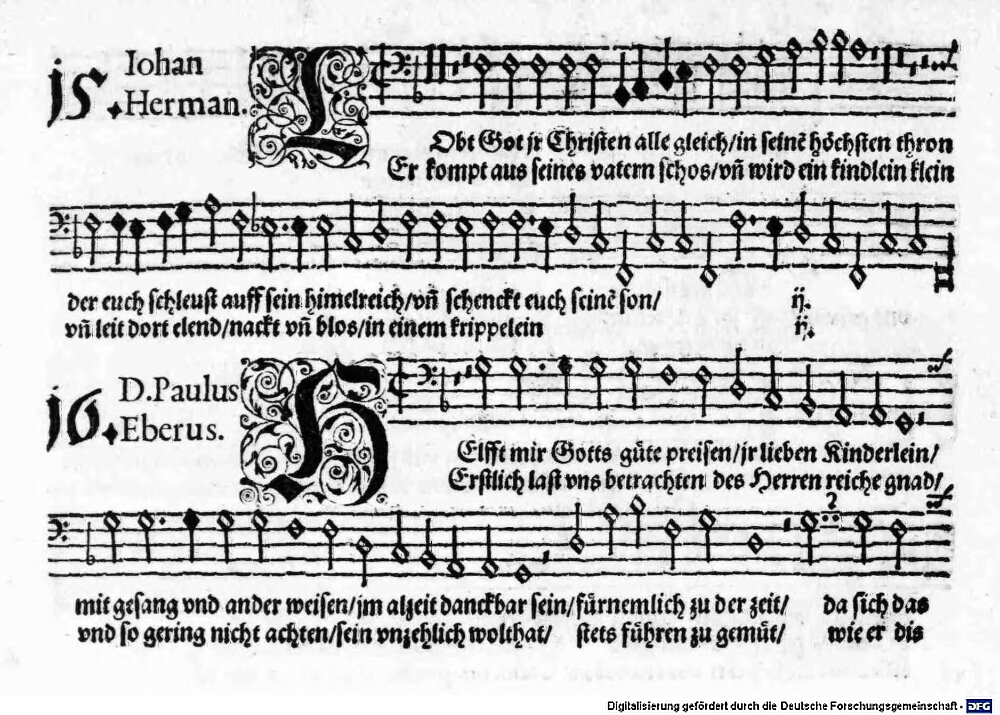 15 Iohan
✦Herman.
LObt Got jr Christen alle gleich/in seinē höchsten thron
Er kompt aus seines vatern schos/vn̄ wird ein kindlein klein
der euch schleust auff sein himelreich/vn̄ schenckt euch seinē son/ ij.
vn̄ leit dort elend/nackt vn̄ blos/in einem krippelein ij.
16 D.Paulus
✦Eberus.
HElfft mir Gotts güte preisen/jr lieben Kinderlein/
Erstlich last vns betrachten des Herren reiche gnad/
mit gesang vnd ander weisen/jm alzeit danckbar sein/fürnemlich zu der zeit/ da sich das
vnd so gering nicht achten/sein vnzehlich wolthat/ stets führen zu gemüt/ wie er dis
Digitalisierung gefördert durch die Deutsche Forschungsgemeinschaft - DFG